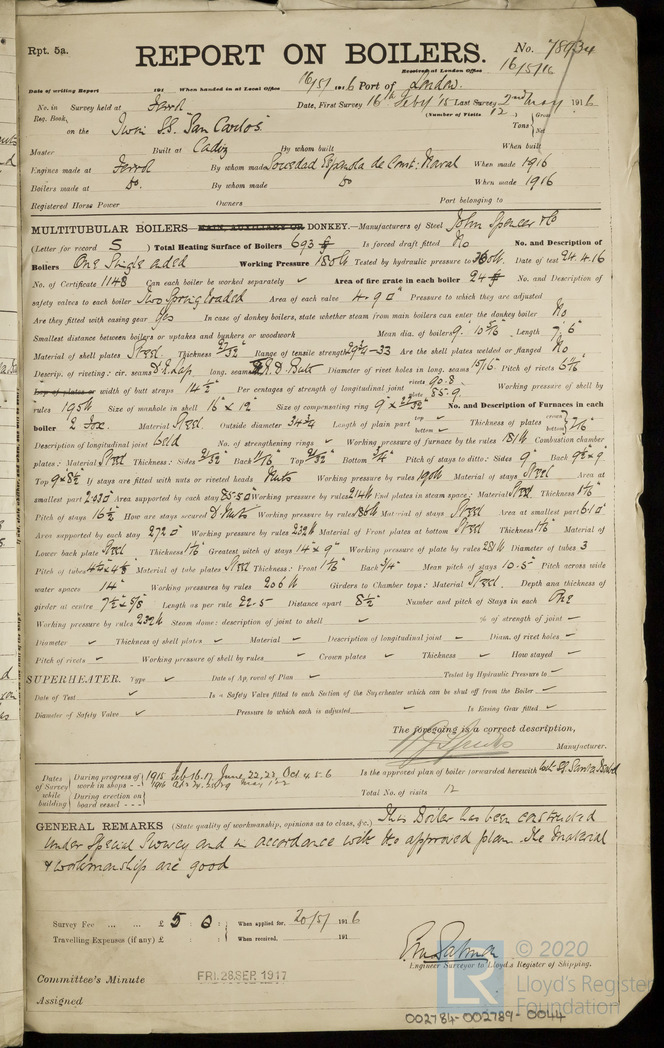 Rpt. 5a.
REPORT ON BOILERS.
No. 78934
Received at London Office 16/5/16
Date of writing Report 191 When handed in at Local Office 16/5/ 1916 Port of London.
No. in Survey held at Ferrol Date, First Survey 16th Feby 15 Last Survey 2nd May 1916
Reg. Book. (Number of Visits 12)
on the Twin SS. "San Carlos" Tons Gross Net
Master Built at Cadiz By whom built When built
Engines made at Ferrol By whom made Sociedad Española de Const: Naval When made 1916
Boilers made at Do. By whom made Do When made 1916
Registered Horse Power Owners Port belonging to
MULTITUBULAR BOILERS MAIN, AUXILIARY OR DONKEY.—Manufacturers of Steel John Spencer & Co
(Letter for record S) Total Heating Surface of Boilers 693 Is forced draft fitted No No. and Description of
Boilers One Single ended Working Pressure 180 lb Tested by hydraulic pressure to 360 lb Date of test 24.4.16
No. of Certificate 1148 Can each boiler be worked separately ✓ Area of fire grate in each boiler 24 No. and Description of
safety valves to each boiler Two Spring loaded Area of each valve 4.9 Pressure to which they are adjusted
Are they fitted with easing gear Yes In case of donkey boilers, state whether steam from main boilers can enter the donkey boiler No
Smallest distance between boilers or uptakes and bunkers or woodwork Mean dia. of boilers 9' Length 7'6"
Material of shell plates Steel Thickness 27/32" Range of tensile strength 29¾-33 Are the shell plates welded or flanged No
Descrip. of riveting: cir. seams D.R. Lap long. seams Butt Diameter of rivet holes in long. seams Pitch of rivets
Lap of plates or width of butt straps 14½" Per centages of strength of longitudinal joint rivets 90.8 plate 85.9 Working pressure of shell by
rules 195 lb Size of manhole in shell 16" x 12" Size of compensating ring No. and Description of Furnaces in each
boiler 2 Fox. Material Steel Outside diameter Length of plain part top bottom Thickness of plates crown bottom
Description of longitudinal joint Weld No. of strengthening rings ✓ Working pressure of furnace by the rules 181 lb Combustion chamber
plates: Material Steel Thickness: Sides 21/32" Back Top 21/32" Bottom ¾" Pitch of stays to ditto: Sides 9" Back
Top 9 x 8½ If stays are fitted with nuts or riveted heads Nuts Working pressure by rules Material of stays Steel Area at
smallest part 2.030 Area supported by each stay Working pressure by rules 214 lb End plates in steam space: Material Steel Thickness
Pitch of stays 16½" How are stays secured D Nuts Working pressure by rules Material of stays Steel Area at smallest part 6.10
Area supported by each stay 272 Working pressure by rules 232 lb Material of Front plates at bottom Steel Thickness Material of
Lower back plate Steel Thickness Greatest pitch of stays 14" x 9" Working pressure of plate by rules 281 lb Diameter of tubes 3
Pitch of tubes Material of tube plates Steel Thickness: Front Back ¾" Mean pitch of stays 10.5" Pitch across wide
water spaces 14" Working pressures by rules 206 lb Girders to Chamber tops: Material Steel. Depth and thickness of
girder at centre Length as per rule 22.5 Distance apart 8½" Number and pitch of Stays in each One
Working pressure by rules 232 lb Steam dome: description of joint to shell ✓ % of strength of joint ✓
Diameter ✓ Thickness of shell plates ✓ Material ✓ Description of longitudinal joint ✓ Diam. of rivet holes ✓
Pitch of rivets ✓ Working pressure of shell by rules ✓ Crown plates ✓ Thickness ✓ How stayed ✓
SUPERHEATER. Type ✓ Date of Approval of Plan ✓ Tested by Hydraulic Pressure to ✓
Date of Test ✓ Is a Safety Valve fitted to each Section of the Superheater which can be shut off from the Boiler ✓
Diameter of Safety Valve ✓ Pressure to which each is adjusted ✓ Is Easing Gear fitted ✓
The foregoing is a correct description,
Manufacturer.
Dates of Survey while building During progress of work in shops - - 1915 Feb 16.17 June 22,23, Oct 4.5.6 Is the approved plan of boiler forwarded herewith
During erection on board vessel - - - Total No. of visits 12
GENERAL REMARKS (State quality of workmanship, opinions as to class, &c.) This Boiler has been constructed
under Special Survey and in accordance with the approved plan. The material
& workmanship are good
Survey Fee ... ... £ 5 : 0 : When applied for, 20/5/ 1916
Travelling Expenses (if any) £ : : When received, 191
Engineer Surveyor to Lloyd's Register of Shipping.
Committee's Minute FRI. 28 SEP 1917
Assigned
© 2020
LR
Lloyd's Register
Foundation
002784-002789-0044